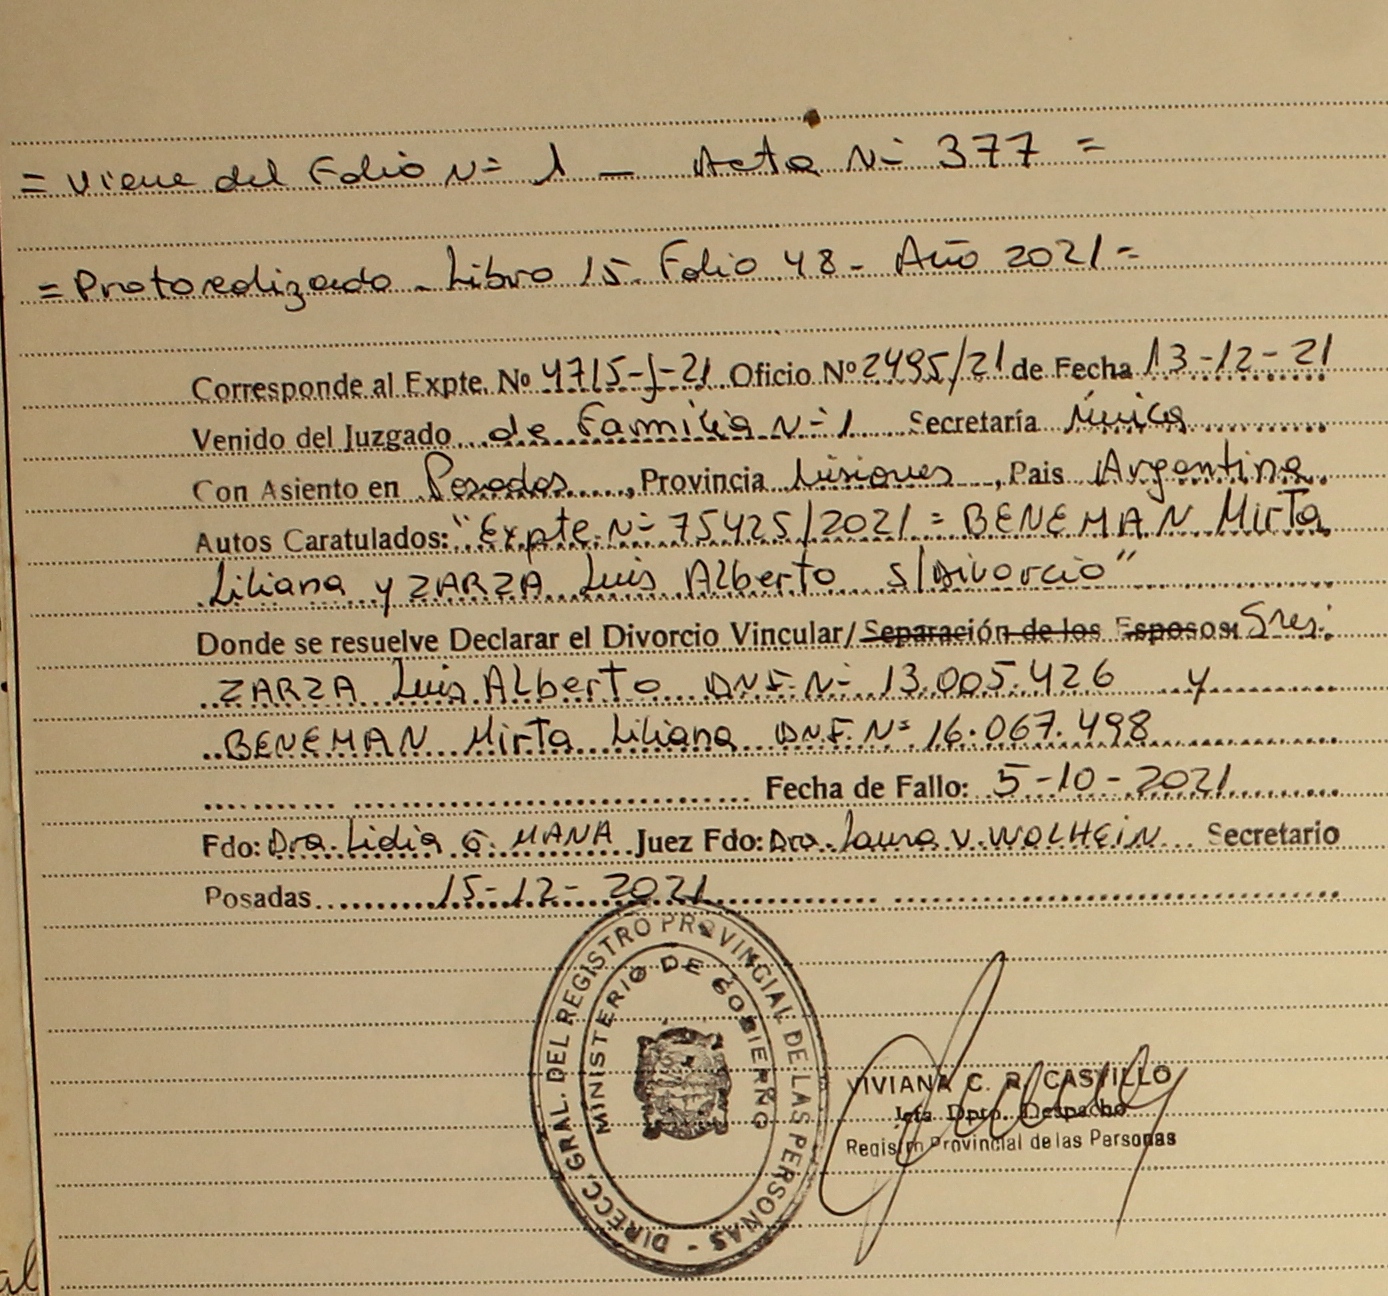 = Viene del Folio Nº 1 — Acta Nº 377 =
= Protocolizado - Libro 15. Folio 48 - Año 2021 =
Corresponde al Expte. Nº 4715-J-21 Oficio Nº 2495/21 de Fecha 13-12-21
Venido del Juzgado de Familia Nº 1 Secretaría Única
Con Asiento en Posadas, Provincia Misiones, Pais Argentina
Autos Caratulados: "Expte. Nº 75425/2021 = BENEMAN Mirta
Liliana y ZARZA Luis Alberto s/Divorcio"
Donde se resuelve Declarar el Divorcio Vincular/ Separación de los Esposos: Sres:
ZARZA Luis Alberto DNI. Nº 13.005.426 y
BENEMAN Mirta Liliana DNI. Nº 16.067.498
Fecha de Fallo: 5-10-2021
Fdo: Dra. Lidia G. MANA Juez Fdo: Dra. Laura V. WOLHEIN Secretario
Posadas 15-12-2021
DIRECC. GRAL. DEL REGISTRO PROVINCIAL DE LAS PERSONAS -
MINISTERIO DE GOBIERNO
VIVIANA C. R. CASTILLO
Jefa Dpto. Despacho
Registro Provincial de las Personas
al